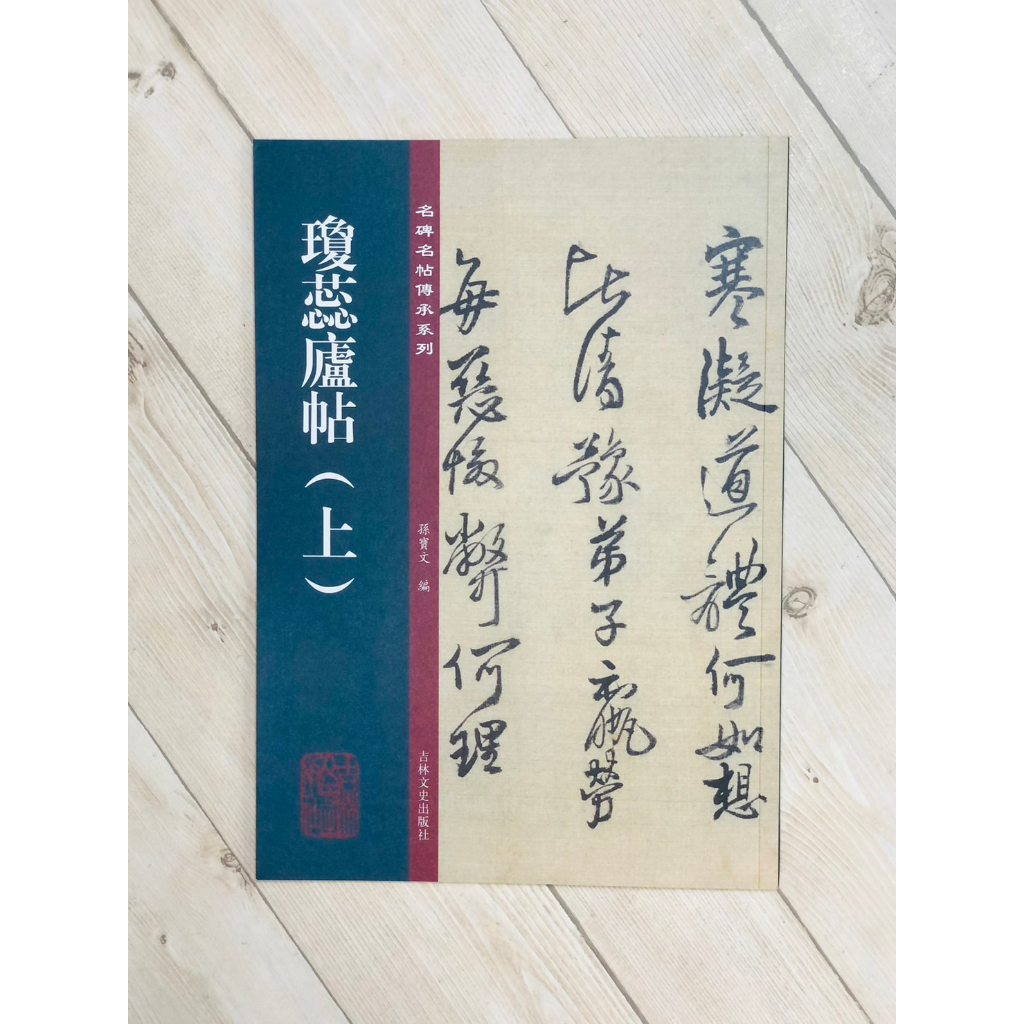 瓊蕊廬帖（上）
名碑名帖傳承系列
孫寶文 編
吉林文史出版社
寒凝道體何如想
比清豫弟子羸勞
每慈悔弊何理